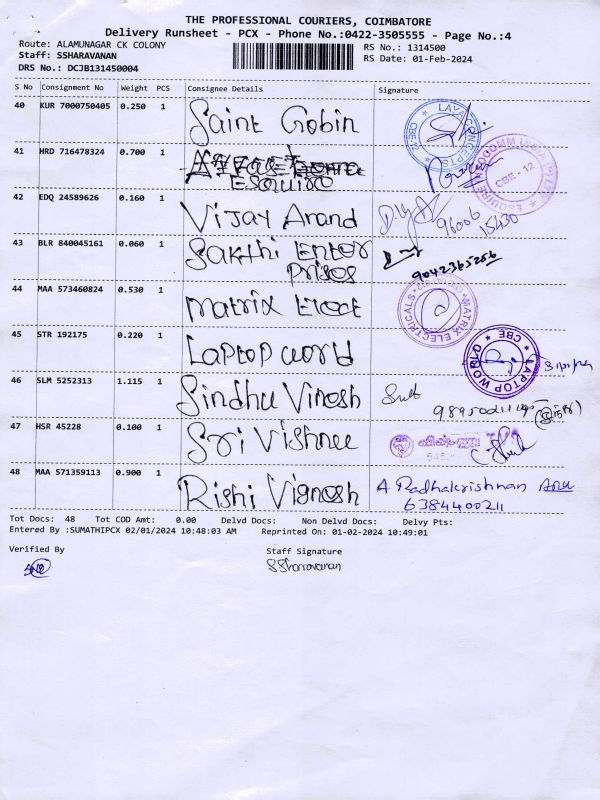 THE PROFESSIONAL COURIERS, COIMBATORE
Delivery Runsheet - PCX - Phone No.:0422-3505555 - Page No.:4
Route: ALAMUNAGAR CK COLONY RS No.: 1314500
Staff: SSHARAVANAN RS Date: 01-Feb-2024
DRS No.: DCJB131450004
S No Consignment No Weight PCS Consignee Details Signature
40 KUR 7000750405 0.250 1 Saint Gobin
41 HRD 716478324 0.700 1
Esquire
42 EDQ 24589626 0.160 1 Vijay Anand 96006 15430
43 BLR 840045161 0.060 1 Sakthi Enter
Prises 9042365256
44 MAA 573460824 0.530 1 Matrix Elect MATRIX ELECTRICALS
45 STR 192175 0.220 1 Laptop world LAPTOP WORLD CBE
46 SLM 5252313 1.115 1 Sindhu Vinosh
47 HSR 45228 0.100 1 Sri Vishnu
48 MAA 571359113 0.900 1 Rishi Vignesh A. Radhakrishnan
6384400211
Tot Docs: 48 Tot COD Amt: 0.00 Delvd Docs: Non Delvd Docs: Delvy Pts:
Entered By :SUMATHIPCX 02/01/2024 10:48:03 AM Reprinted On: 01-02-2024 10:49:01
Verified By Staff Signature
SSharavanan